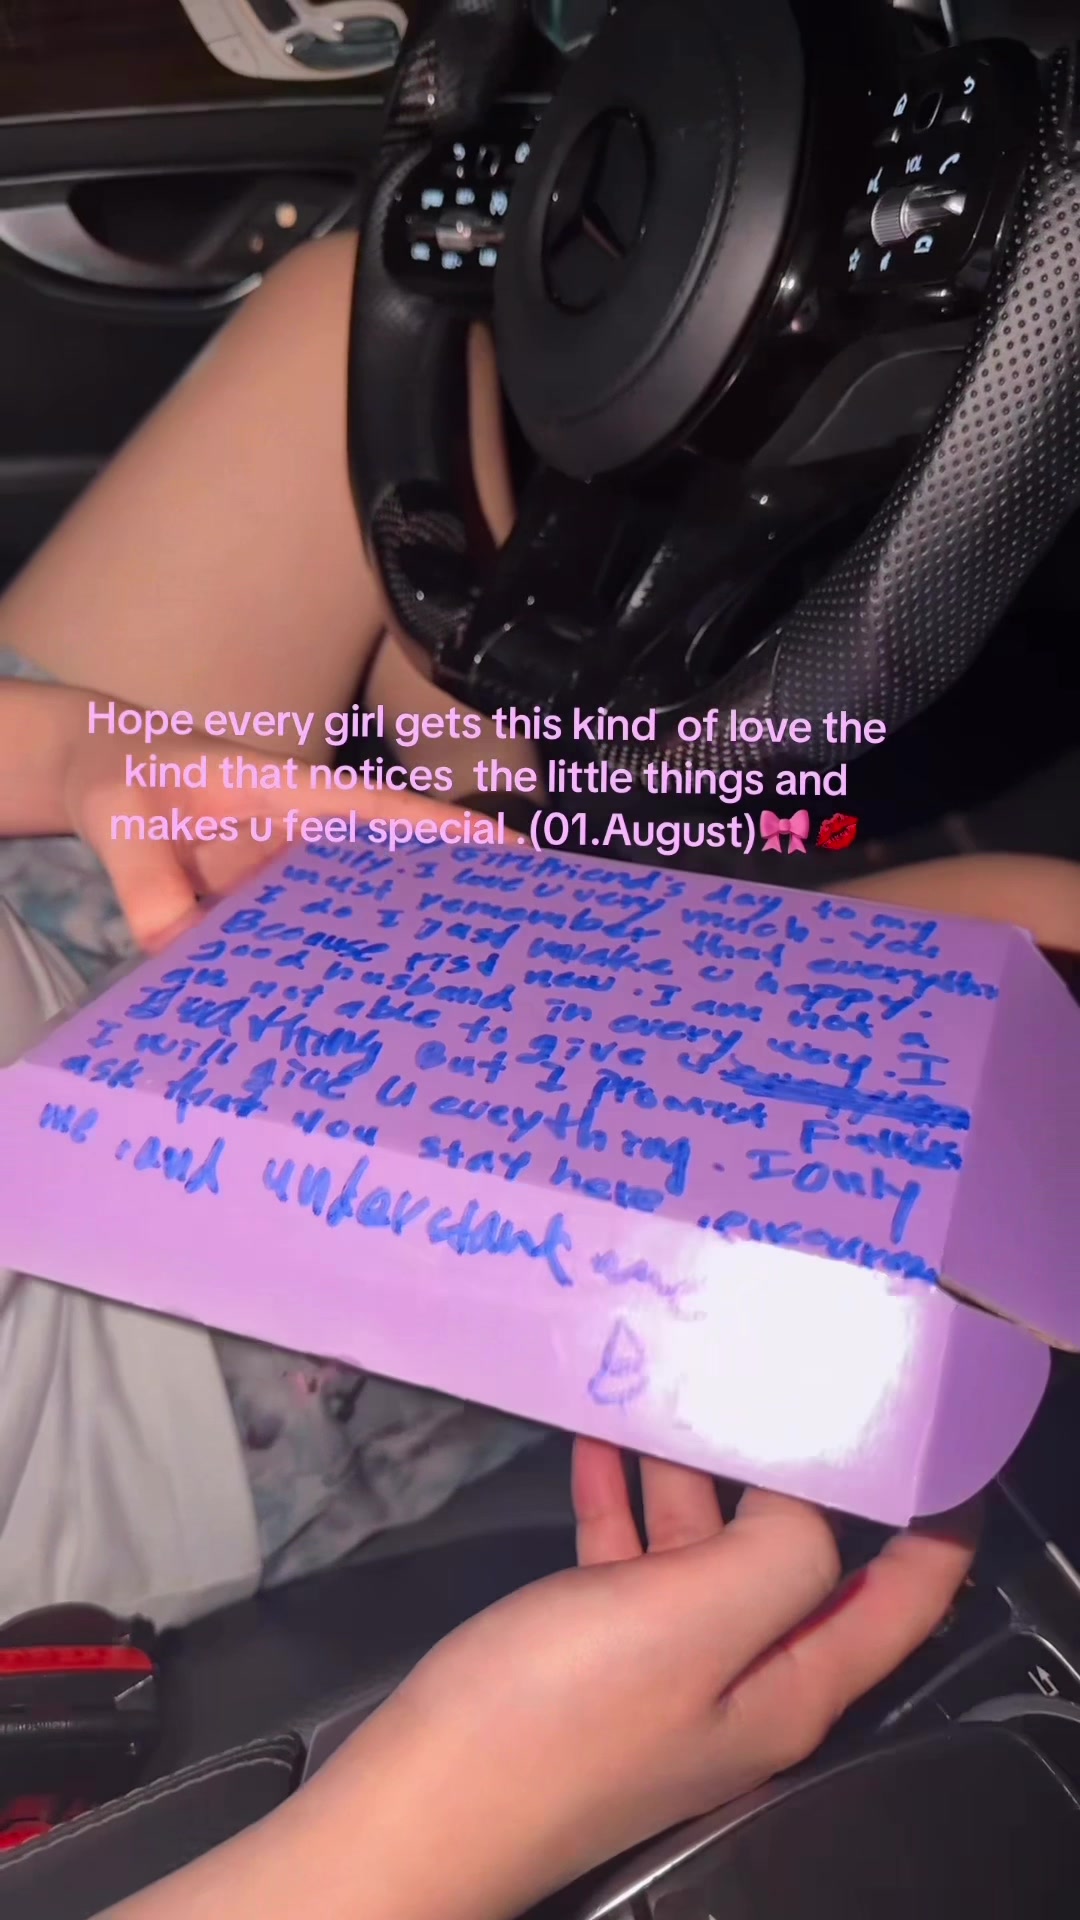 Hope every girl gets this kind of love the
kind that notices the little things and
makes u feel special .(01.August)🎀💋
Girlfriend's day to my
wify. I love u very much. You
must remember that everything
I do I just make u happy.
Because right now. I am not a
good husband in every way. I
am not able to give u
But I promise
I will give u eveything. I only
ask that you stay here
me . and understant